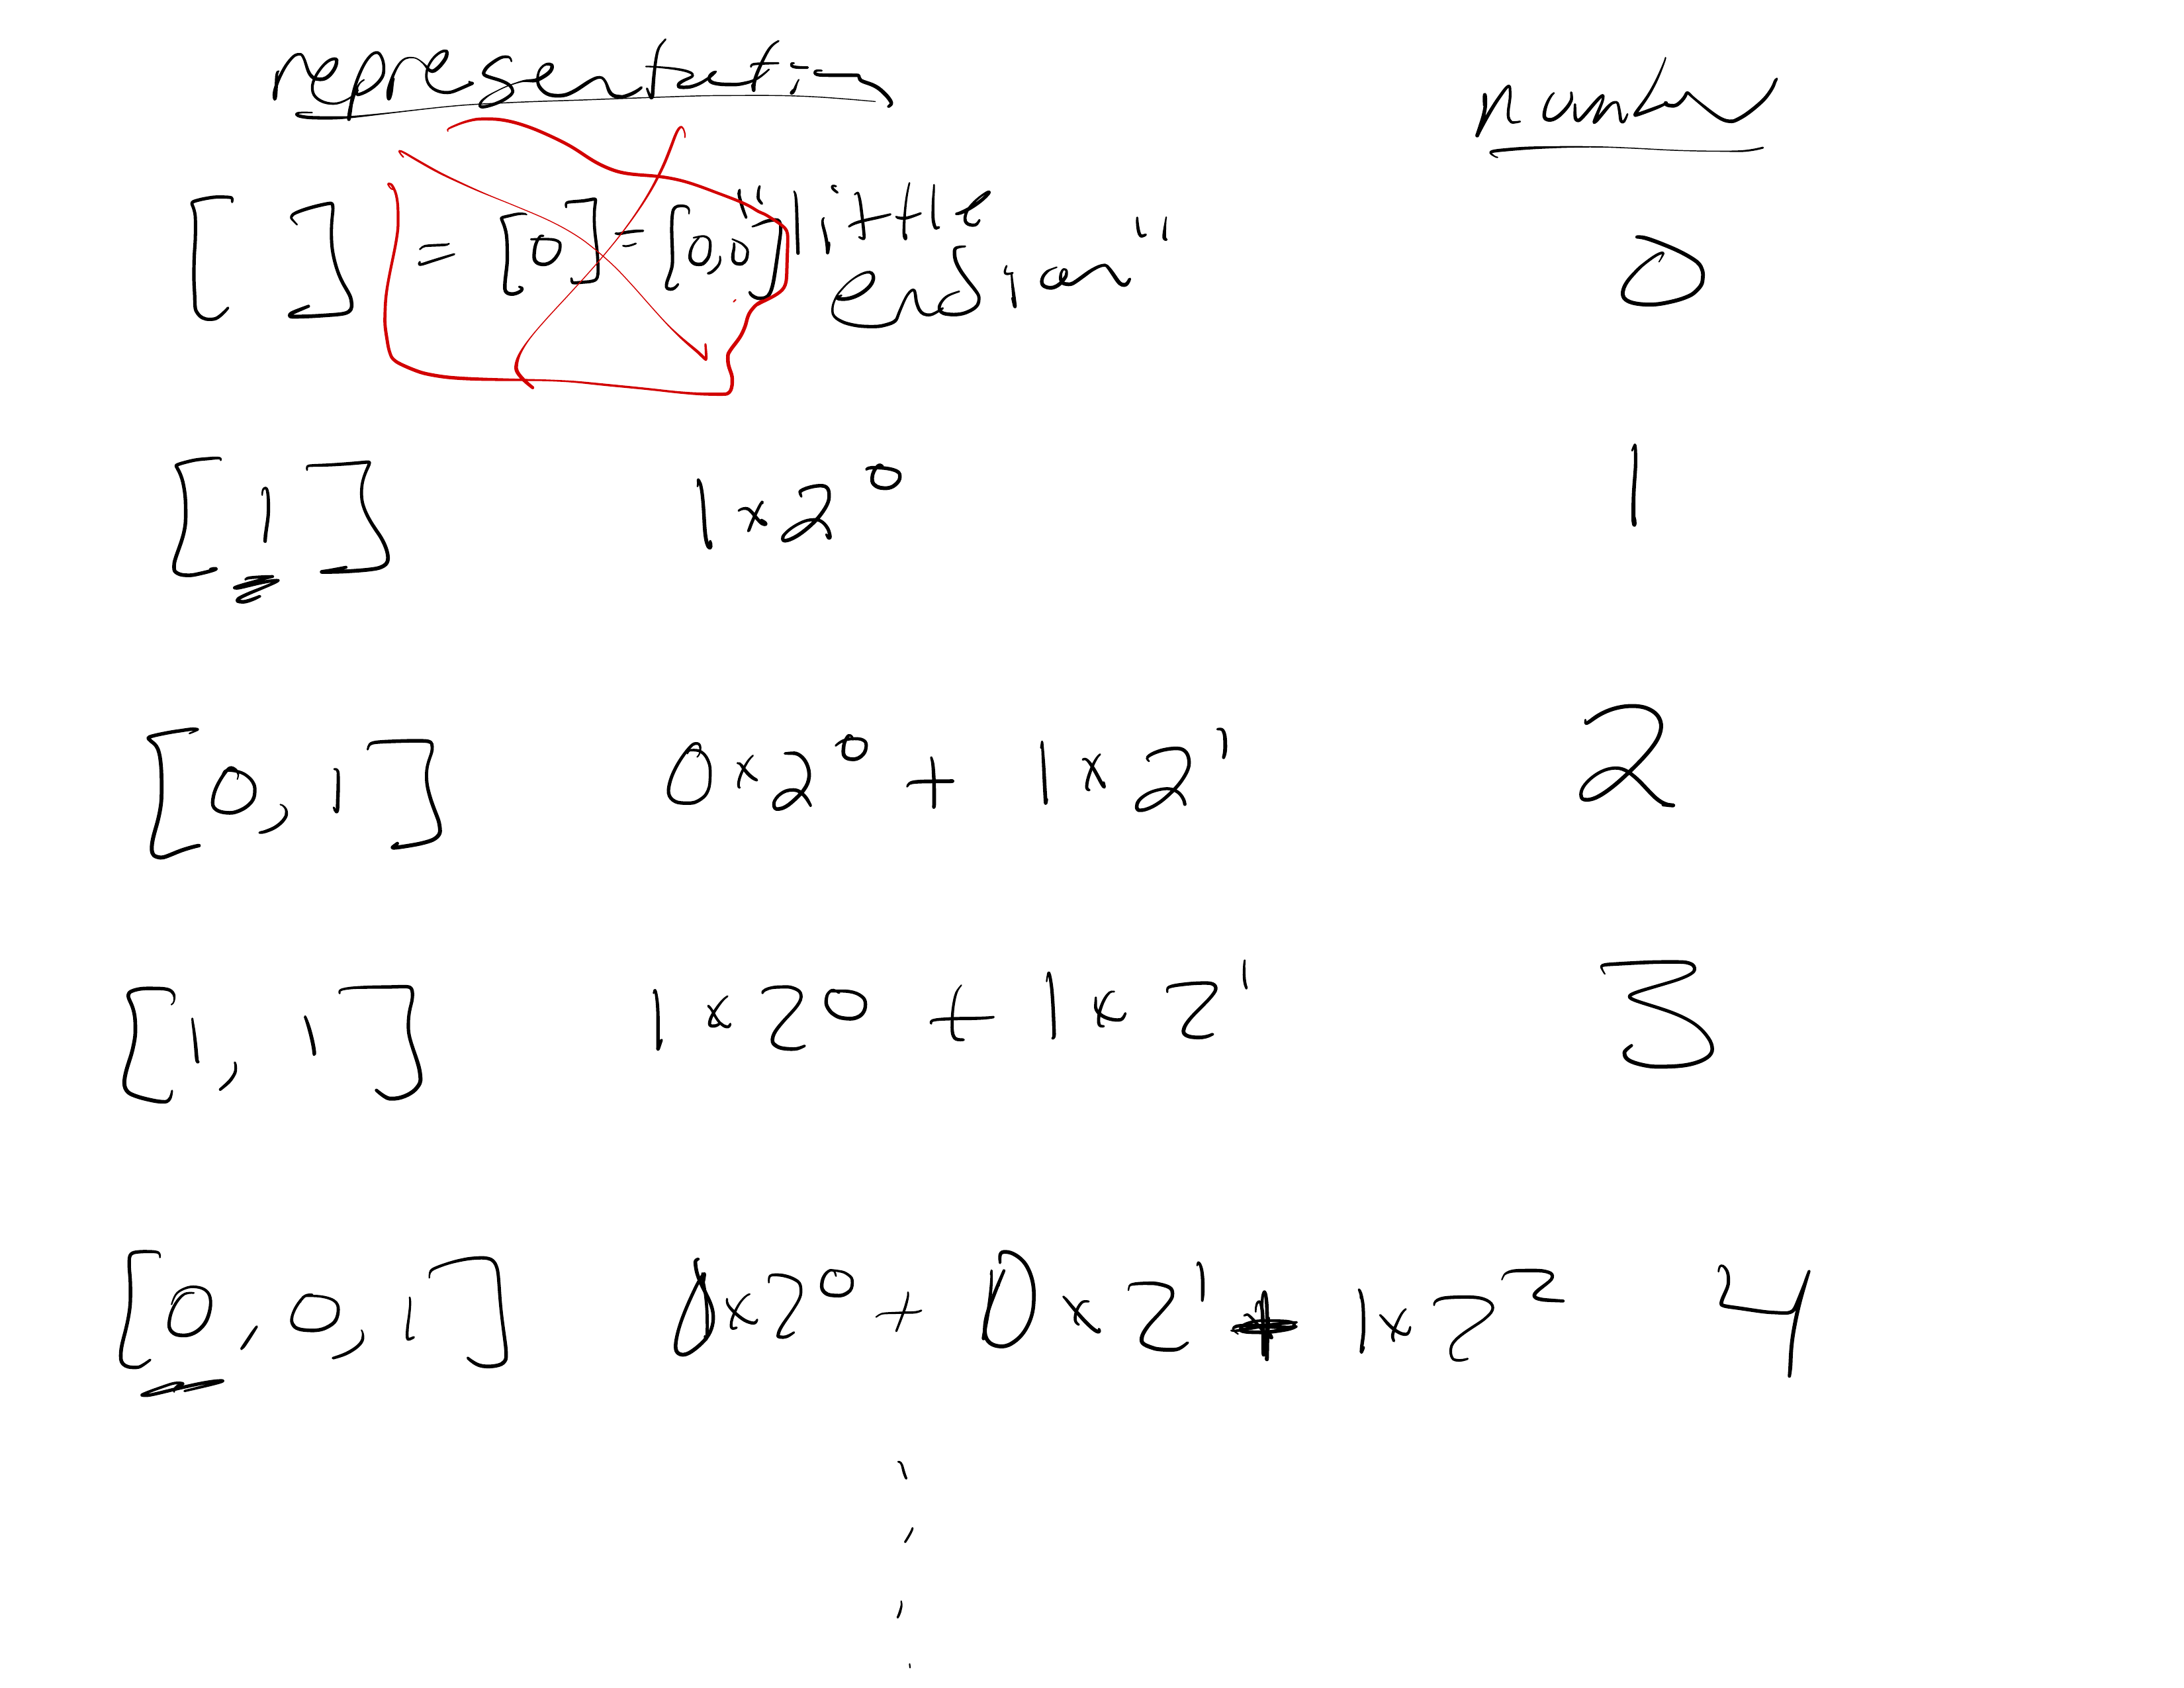 representation number
[ ] = [0] = [0,0] "little endian" 0
[1] 1 × 2⁰ 1
[0, 1] 0 × 2⁰ + 1 × 2¹ 2
[1, 1] 1 × 2⁰ + 1 × 2¹ 3
[0, 0, 1] 0 × 2⁰ + 0 × 2¹ + 1 × 2² 4